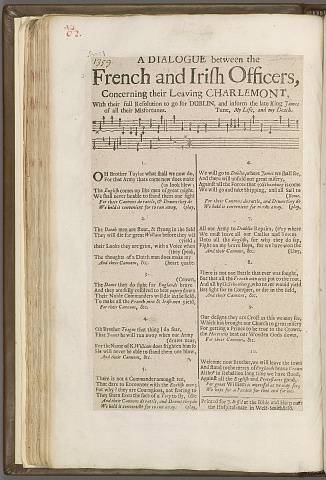 62.
1359
A DIALOGUE between the
French and Irish Officers,
Concerning their Leaving CHARLEMONT,
With their full Resolution to go for DUBLIN, and inform the late King James
of all their Misfortunes. Tune, My Life, and my Death.
1.
OH Brother Taylor what shall we now do,
For that Army that's come now does make
(us look blew;
The English comes up like men of great might,
We shall never beable to stand them one fight
For their Cannons do rattle, & Drums they do
We held it convenient for to run away. (play,
2.
The Danes men are stout, & strong in the field
They will die for great William before will
(yield;
their Looks they are grim, with a Voice when
(they speak,
The thoughts of a Dutch man does make my
And their Cannons, &c. (heart quake.
3.
(Crown,
The Danes they do fight for England's brave
And they are fully resolved to
Their Noble Commanders will die in the field,
To make all the French and Irish men yield,
For their Cannons, &c.
4.
Oh Brother Teague that thing I do fear,
That James he will run away now our Army
(draws near,
For the Name of K. William does frighten him so
He will never be able to stand them one blow,
And their Cannons, &c.
5.
There is not a Commander amongst us,
That dare to Encounter with the English
For why? they are Couragious, not fearing to
They start from the face of a Tory to fly,
And their Cannons do rattle, and Drums they do
We held it convenient for to run away. (play,
6.
We will go to Dublin, where James we shall see,
And there will unfold our great misery,
Against all the Forces that
We will go and take Shipping, and all Sail to
(Rome,
For their Cannons, do rattle, and Drums they do
We held it convenient for to run away. (play,
7.
All our Army to Dublin Repairs,
must leave all our Castles and Towns
Unto all the English, for why they do
Fight on my brave Boys, for we have won the
And their Cannons, &c.
8.
There is not one Battle that ever was fought,
But that all the French men were put to the rout,
And all by who ne'er would yield
late fight for in Compter, or die in the field,
And their Cannons, &c.
9.
Our designs they are Crost as this we may see,
Which has brought our Church to great misery
For getting a Prince to be true to the Crown,
the Protestants beat our Wooden Gods down,
For their Cannons, &c.
10.
Welcome now Brether, we will leave the town
And stand to the mercy of England's brave Crown
in Rebellion long time we have stood,
Against all the English and Protestants good,
For great William is merciful
We hope for a Pardon
Printed for J. at the Bible and Harp near
the Hospital-Gate in West-Smithfield.